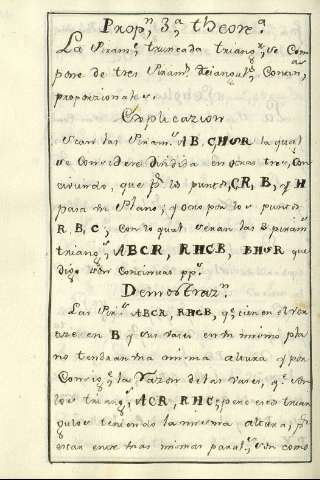 Propn 3.a theorea.
La Piramde truncada triangr, se Com
pone de tres Piramds triangulrs Contin,
proporzionales.
Explicazion
Sean las Piramds ABCHSR la qual
se Considere dividida en otras tres, Con
que pr los puntos, CR, B, y H
pasa un Plano; y otro por los puntos
R, B, C, Con lo qual seran las 3 piramds
triangrs, ABCR, RHCB, BHSR que
digo son Continuas pps.
Demostrazn.
Las Pirs ABCR, RHCB, qe tienen el ver
tize en B y sus vases en un mismo pla
no tendran una misma altura y por
Consige la Razon de las vases, qe son
los triangs, ACR, RHC; pero estos trian
gulos teniendo la misma altura, pr
estar entre unas mismas paralls, son como